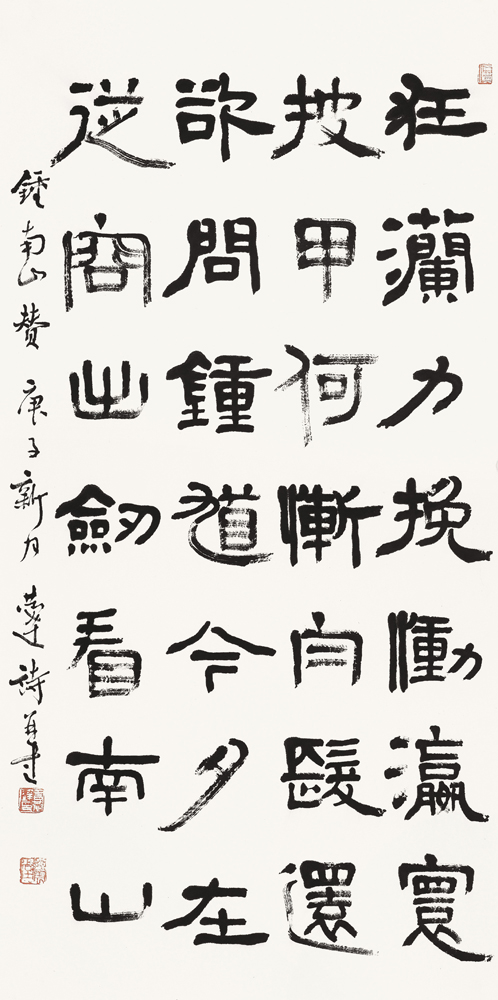 狂瀾力挽慟瀛寰
披甲何慚白髮還
欲問鍾馗今夕在
從容出劒看南山
鍾南山贊 庚子新月 達詩并書